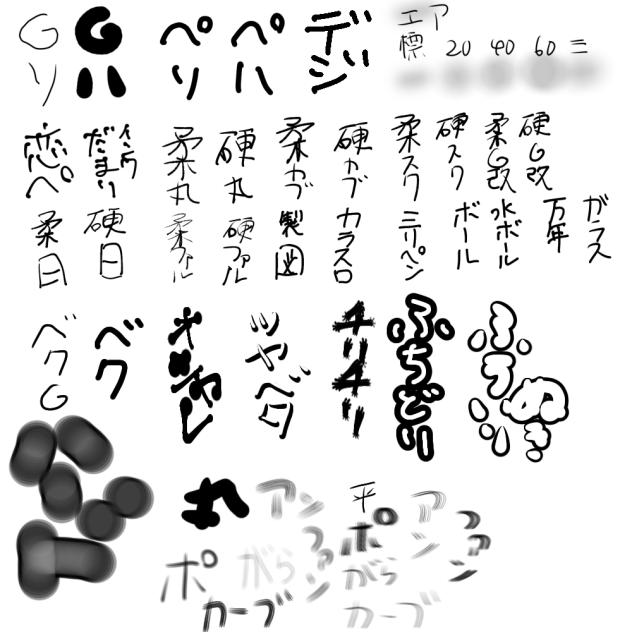 G G ペ ペ デ エア
リ ハ リ ハ ジ 標 20 40 60 ミ
恋ペ インクだまり 柔丸 硬丸 柔カブ 硬カブ 柔スク 硬スク 柔G改 硬G改
柔日 硬日 柔ファル 硬ファル 製図 カラスロ ミリペン ボール 水ボール 万年 ガラス
ベクG ベク オシャレ ツヤベタ チリチリ ふちどり ふちぬき
丸 アン 平 アン ファン
ポ がら ファン ポ がら
カーブ カーブ